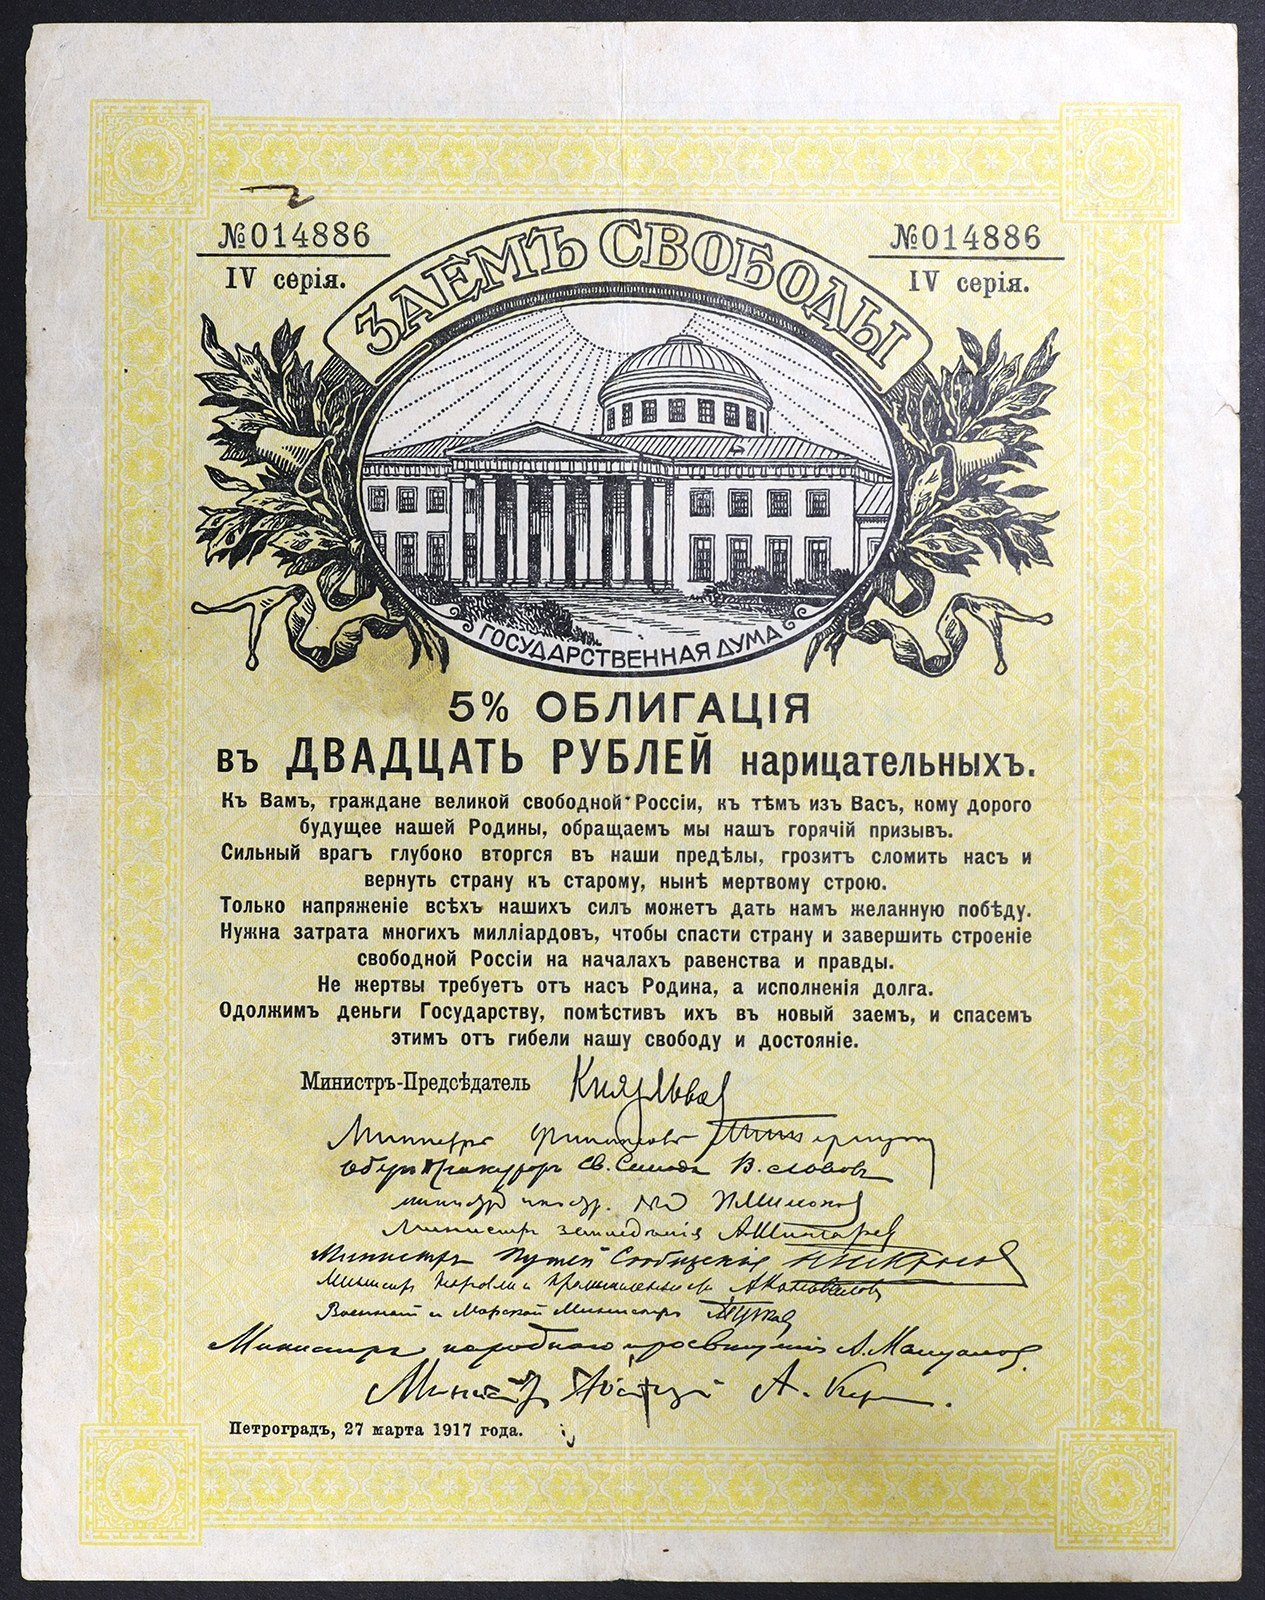 №014886
№014886
IV серія.
IV серія.
ЗАЕМЪ СВОБОДЫ
ГОСУДАРСТВЕННАЯ ДУМА
5% ОБЛИГАЦІЯ
въ ДВАДЦАТЬ РУБЛЕЙ нарицательныхъ.
Къ Вамъ, граждане великой свободной Россіи, къ тѣмъ изъ Васъ, кому дорого
будущее нашей Родины, обращаемъ мы нашъ горячій призывъ.
Сильный врагъ глубоко вторгся въ наши предѣлы, грозитъ сломить насъ и
вернуть страну къ старому, нынѣ мертвому строю.
Только напряженіе всѣхъ нашихъ силъ можетъ дать намъ желанную побѣду.
Нужна затрата многихъ милліардовъ, чтобы спасти страну и завершить строеніе
свободной Россіи на началахъ равенства и правды.
Не жертвы требуетъ отъ насъ Родина, а исполненія долга.
Одолжимъ деньги Государству, помѣстивъ ихъ въ новый заемъ, и спасемъ
этимъ отъ гибели нашу свободу и достояніе.
Министръ-Предсѣдатель Князь Львов
Министръ Финансовъ
Оберъ Прокуроръ Св. Синода В. Львовъ
Министръ П. Милюков
Министръ земледѣлія А. Шингарев
Министръ Путей Сообщенія
Министр Торговли и Промышленности А. Коновалов
Военный и Морской Министръ
Министръ народнаго просвѣщенія А. Мануилов.
Министр А. Кер
Петроградъ, 27 марта 1917 года.